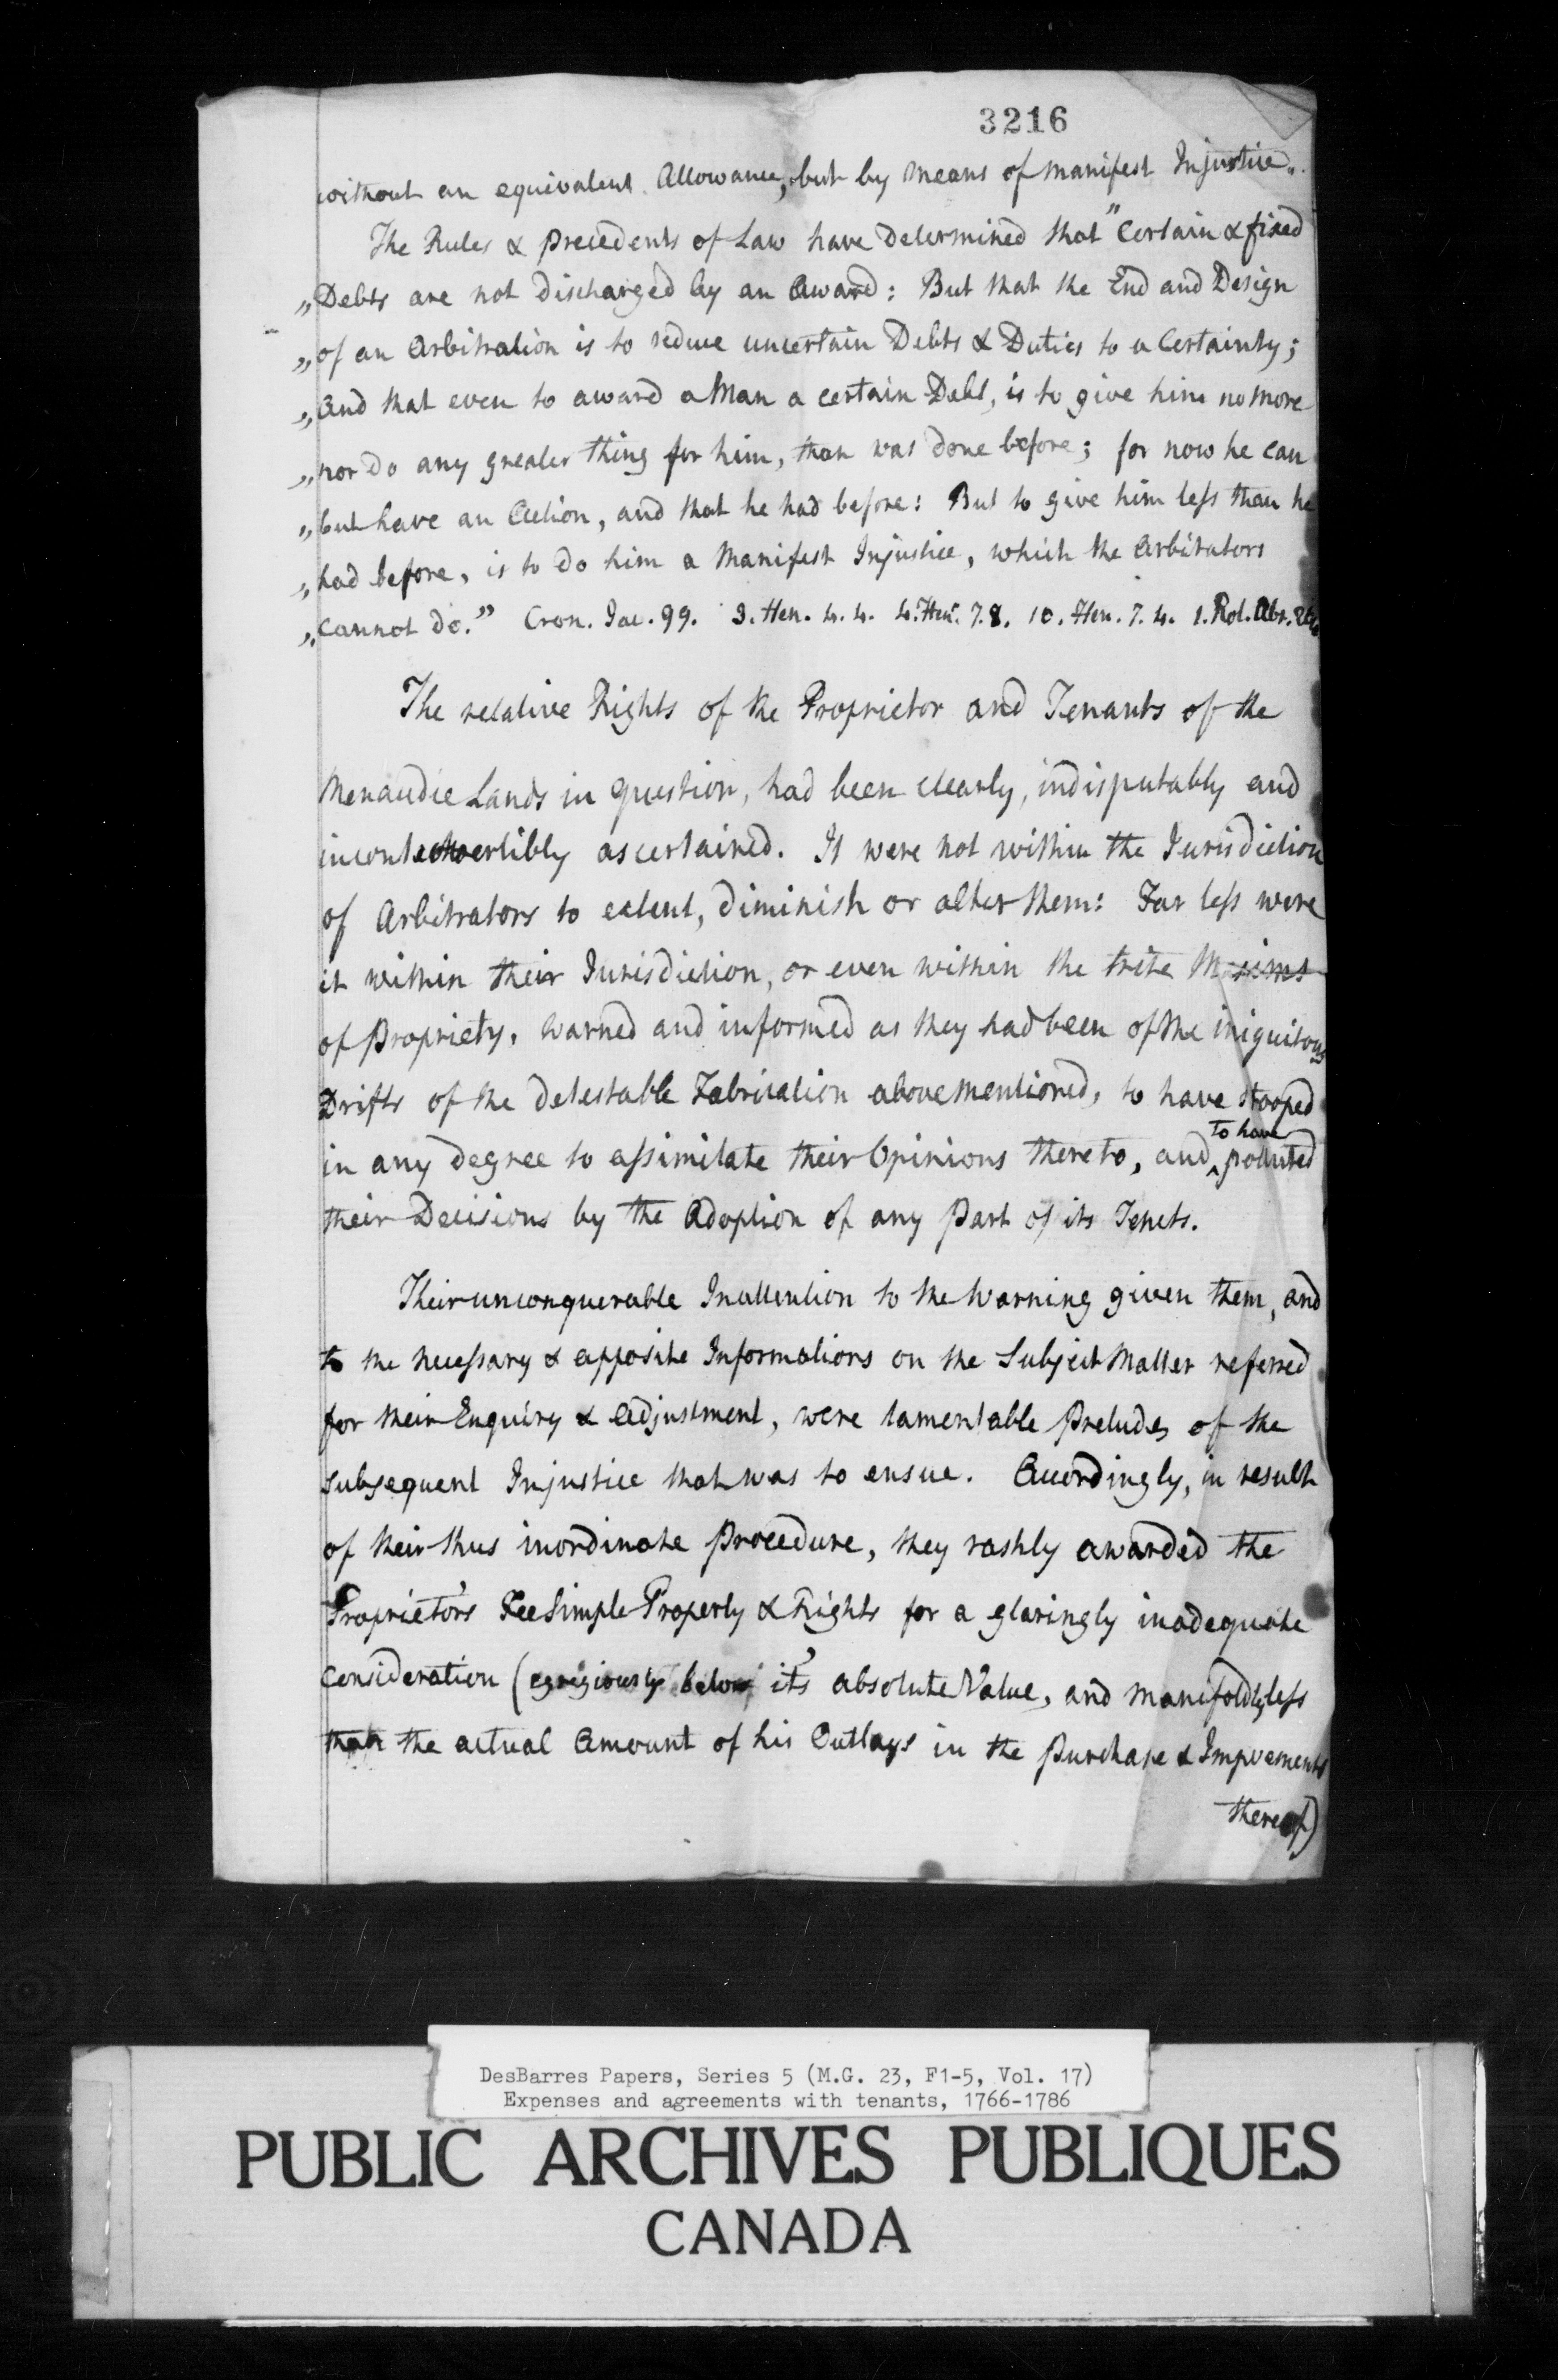 3216
without an equivalent Allowance, but by means of manifest Injustice.
The Rules & precedents of Law have Determined that "Certain & fixed
„Debts are not discharged by an Award: But that the End and Design
„of an Arbitration is to reduce uncertain Debts & Duties to a Certainty;
„and that even to award a Man a certain Debt, is to give him no more
„nor do any greater thing for him, than was done before; for now he can
„but have an Action, and that he had before: But to give him less than he
„had before, is to do him a Manifest Injustice, which the Arbitrators
„cannot do." Cron. Jac. 99. 3. Hen. 4. 4. 4. Hen. 7. 8. 10. Hen. 7. 4. 1. Rol. Abr.
The relative Rights of the Proprietor and Tenants of the
Menaudie Lands in question, had been clearly, indisputably and
incontrovertibly ascertained. It were not within the Jurisdiction
of Arbitrators to extent, diminish or alter them: Far less were
it within their Jurisdiction, or even within the trite Maxims
of propriety, warned and informed as they had been of the iniquitous
Drifts of the detestable Fabrication abovementioned, to have stooped
in any degree to assimilate their Opinions thereto, and ^ to have polluted
their Decisions by the Adoption of any Part of its Tenets.
Their unconquerable Inattention to the Warning given them, and
to the necessary & apposite Informations on the Subject Matter referred
for their Enquiry & Adjustment, were lamentable preludes of the
subsequent Injustice that was to ensue. Accordingly, in result
of their thus inordinate procedure, they rashly awarded the
Proprietor's Fee Simple Property & Rights for a glaringly inadequate
consideration (egregiously below it's absolute Value, and manifoldly less
than the actual Amount of his Outlays in the purchase & Imprvements
thereof)
DesBarres Papers, Series 5 (M.G. 23, F1-5, Vol. 17)
Expenses and agreements with tenants, 1766-1786
PUBLIC ARCHIVES PUBLIQUES
CANADA